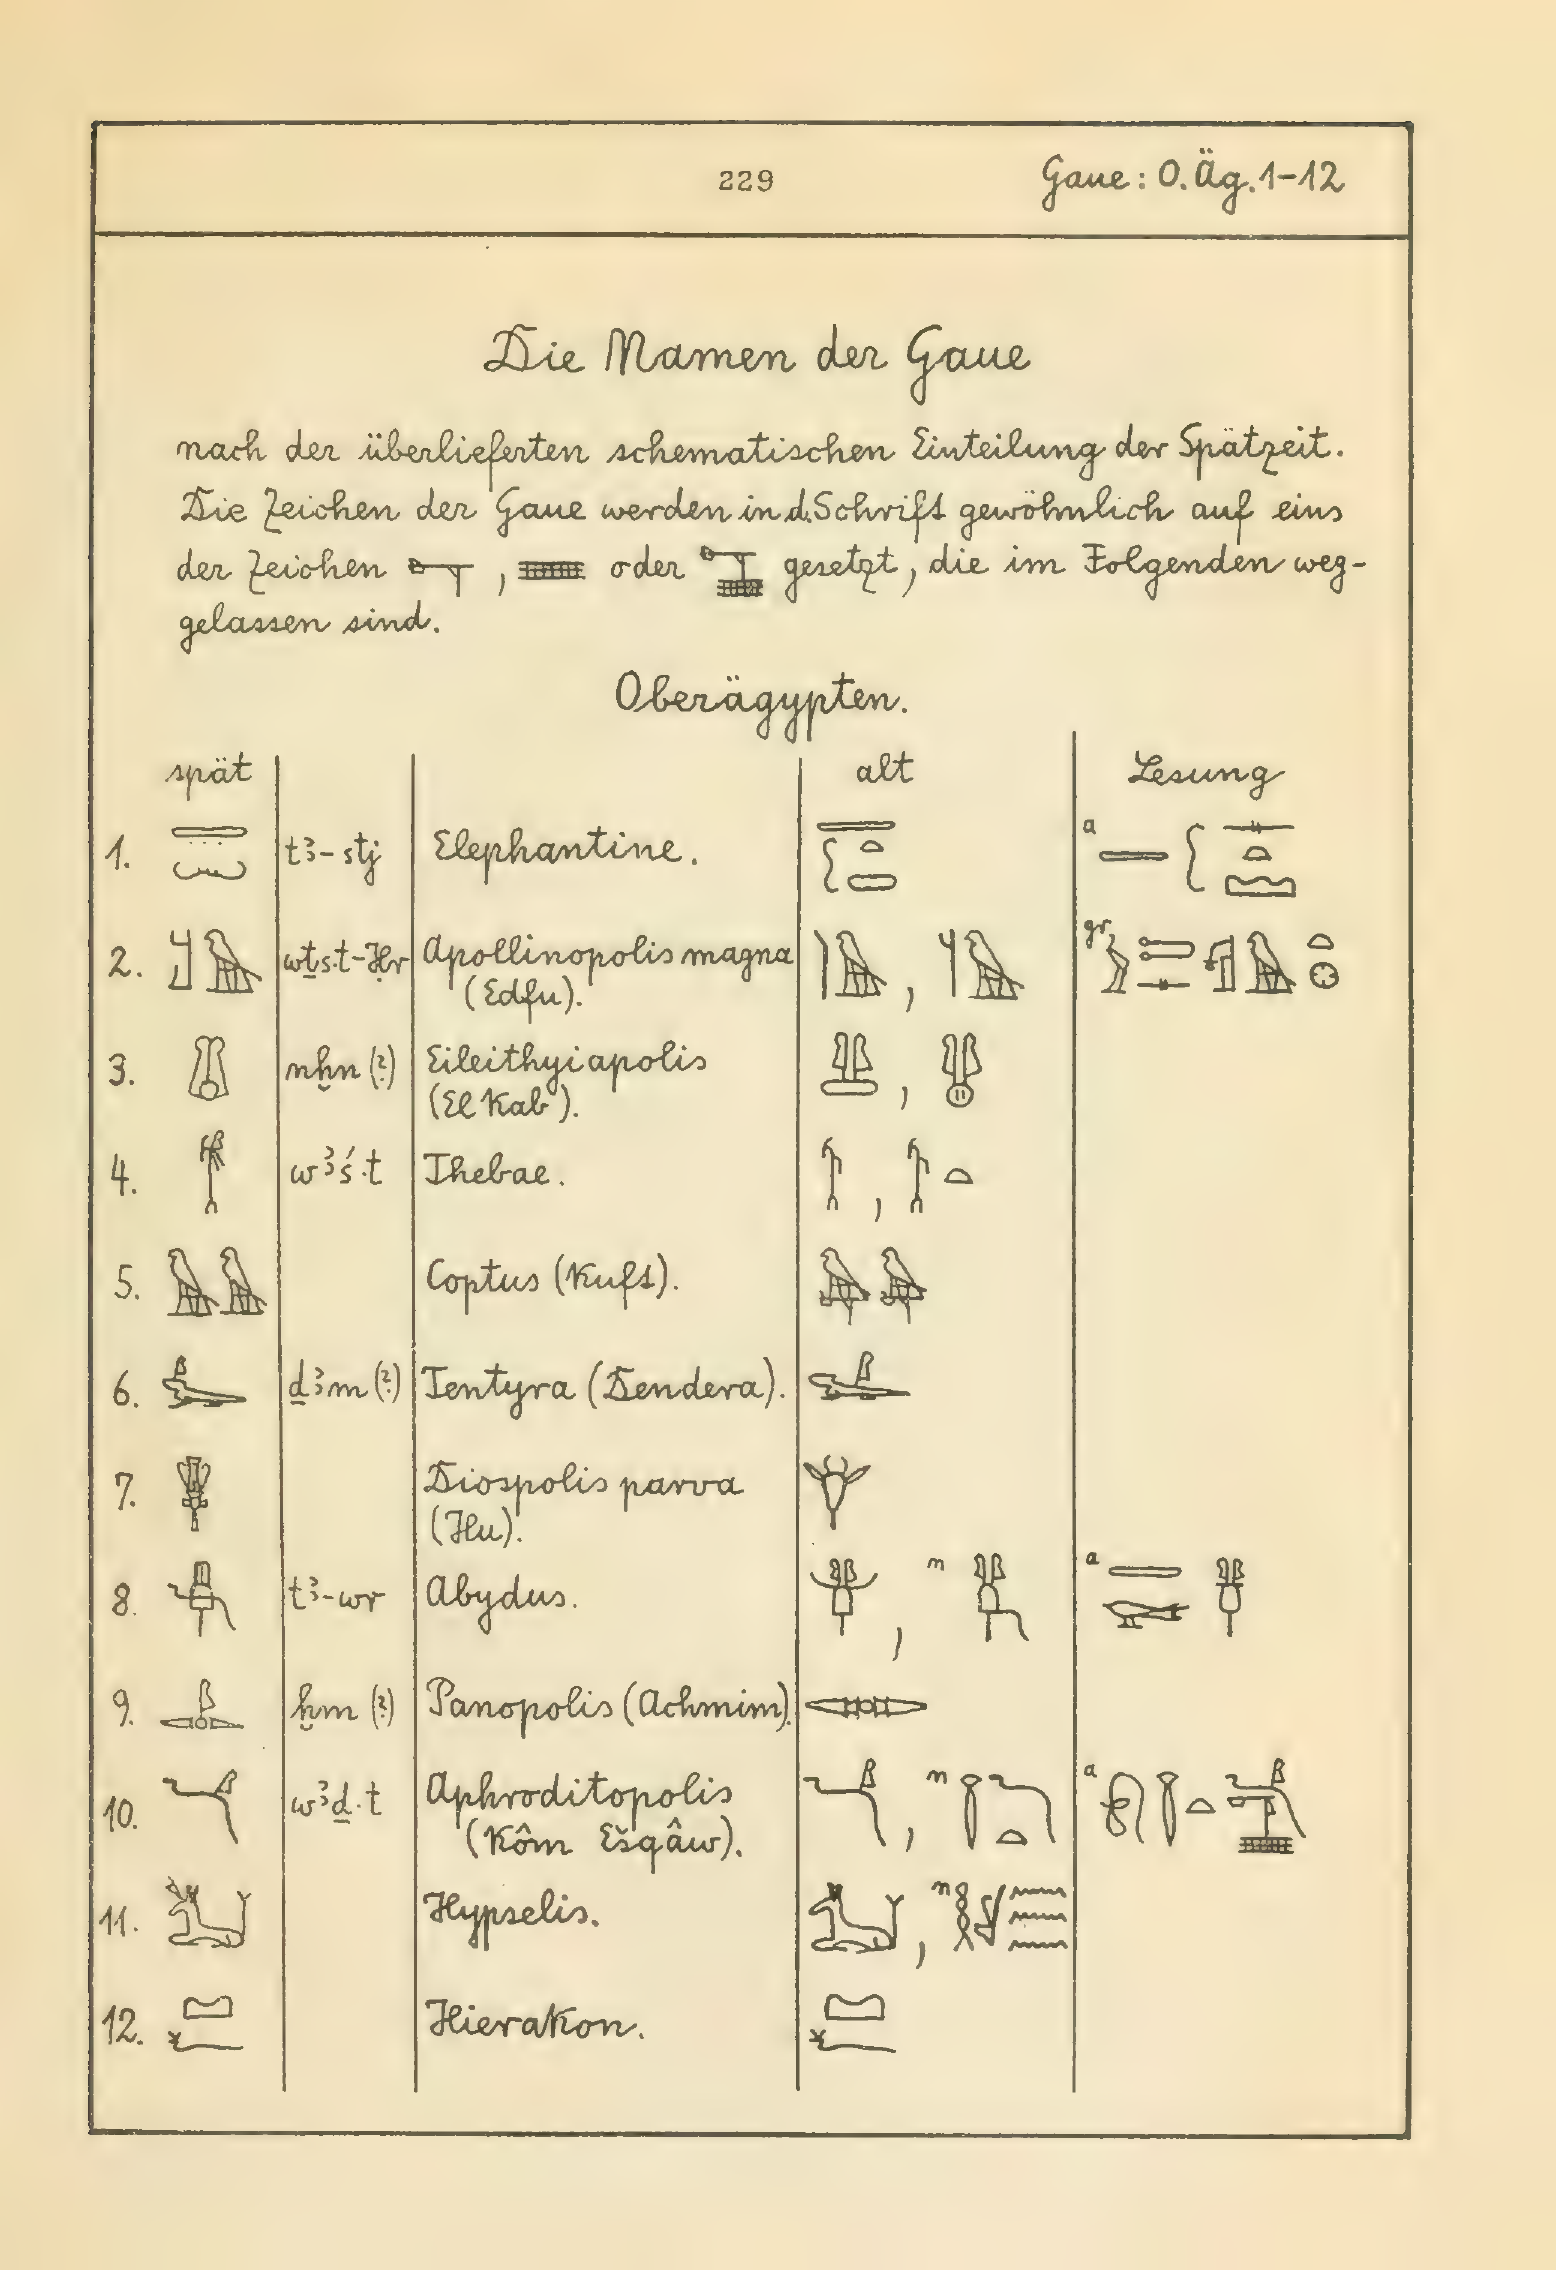 229 Gaue: O. Äg. 1-12
Die Namen der Gaue
nach der überlieferten schematischen Einteilung der Spätzeit.
Die Zeichen der Gaue werden in d. Schrift gewöhnlich auf eins
der Zeichen , oder gesetzt, die im Folgenden weg-
gelassen sind.
Oberägypten.
spät alt Lesung
1. tꜣ-stj Elephantine. a
2. wṯs.t-Ḥr Apollinopolis magna , gr.
(Edfu).
3. nḫn (?) Eileithyiapolis ,
(El Kab).
4. wꜣś.t Thebae. ,
5. Coptus (Kuft).
6. ḏꜣm (?) Tentyra (Dendera).
7. Diospolis parva
(Hu).
8. tꜣ-wr Abydus. , n a
9. ḫm (?) Panopolis (Achmim).
10. wꜣḏ.t Aphroditopolis , n a
(Kôm Ešqâw).
11. Hypselis. , n
12. Hierakon.